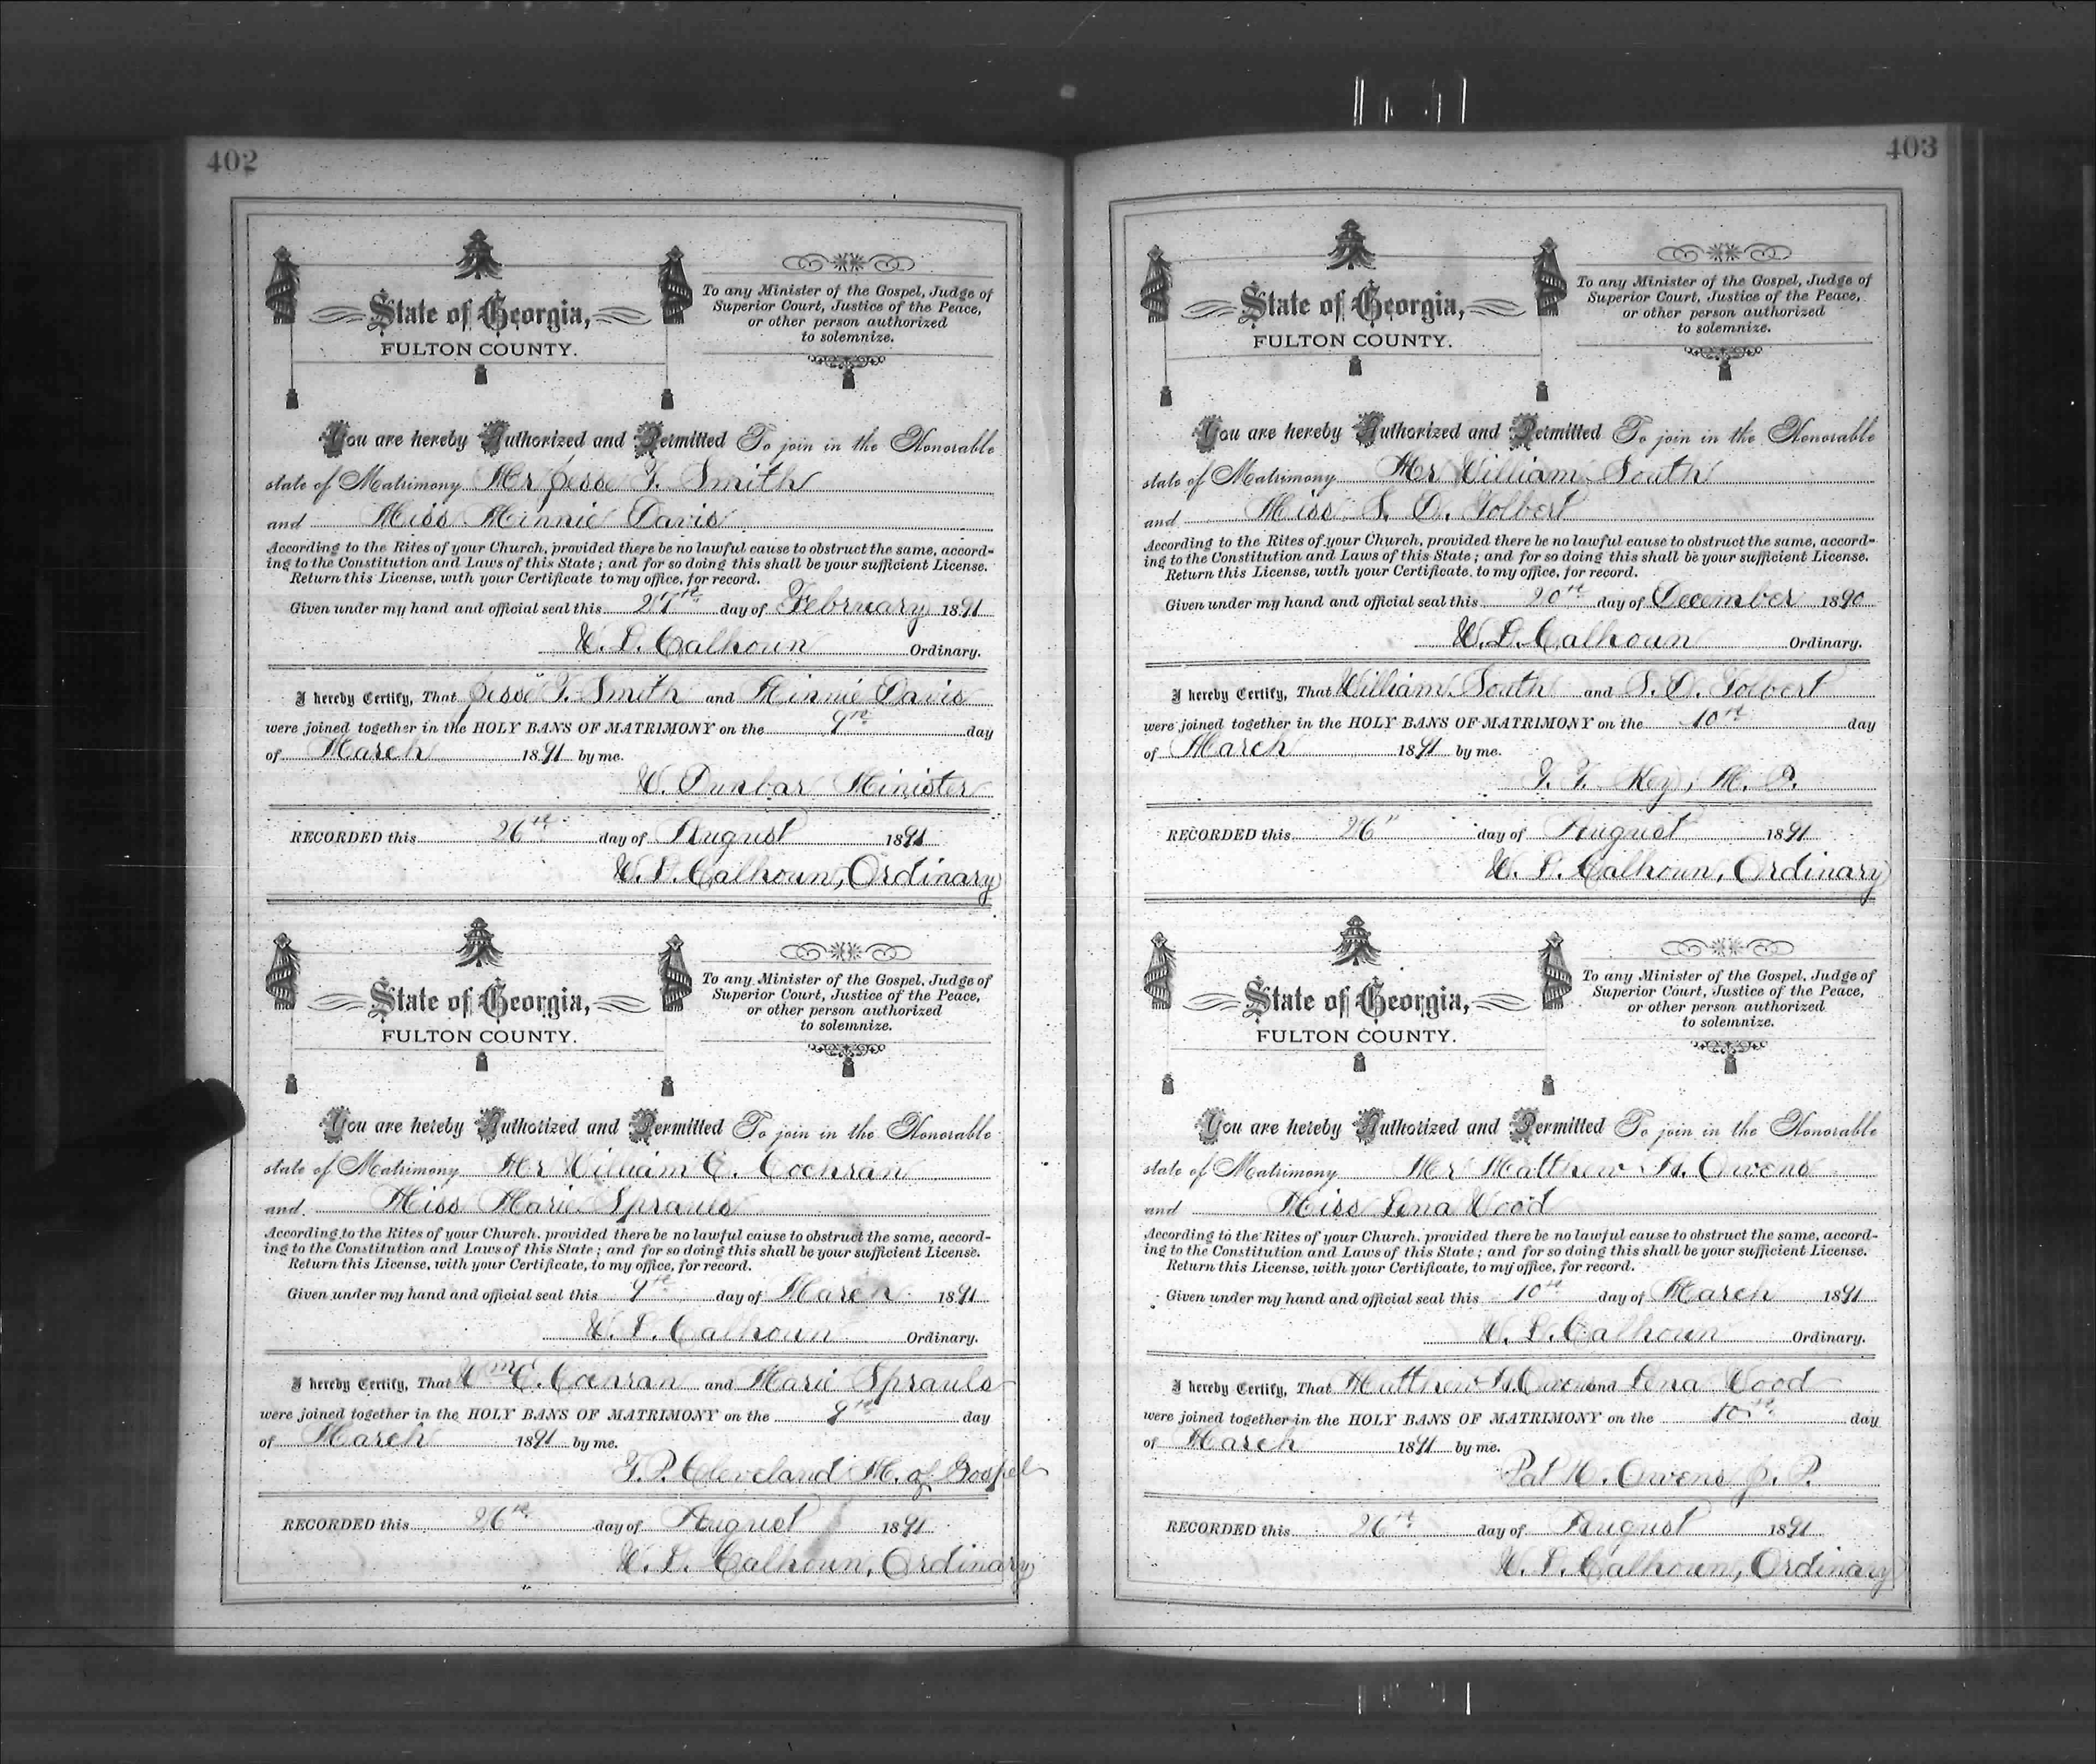 402
State of Georgia,
FULTON COUNTY.
To any Minister of the Gospel, Judge of
Superior Court, Justice of the Peace,
or other person authorized
to solemnize.
You are hereby Authorized and Permitted To join in the Honorable
state of Matrimony Mr Jesse T. Smith
and Miss Minnie Davis
According to the Rites of your Church, provided there be no lawful cause to obstruct the same, accord-
ing to the Constitution and Laws of this State; and for so doing this shall be your sufficient License.
Return this License, with your Certificate to my office, for record.
Given under my hand and official seal this 27th day of February 1891
W. L. Calhoun Ordinary.
I hereby Certify, That Jesse T. Smith and Minnie Davis
were joined together in the HOLY BANS OF MATRIMONY on the 9th day
of March 1891 by me.
W. Dunbar Minister
RECORDED this 26th day of August 1891
W. L. Calhoun, Ordinary
State of Georgia,
FULTON COUNTY.
To any Minister of the Gospel, Judge of
Superior Court, Justice of the Peace,
or other person authorized
to solemnize.
You are hereby Authorized and Permitted To join in the Honorable
state of Matrimony Mr William E. Cochran
and Miss Marie Sprauls
According to the Rites of your Church, provided there be no lawful cause to obstruct the same, accord-
ing to the Constitution and Laws of this State; and for so doing this shall be your sufficient License.
Return this License, with your Certificate, to my office, for record.
Given under my hand and official seal this 9th day of March 1891
W. L. Calhoun Ordinary.
I hereby Certify, That Wm E. Cochran and Marie Sprauls
were joined together in the HOLY BANS OF MATRIMONY on the 9th day
of March 1891 by me.
T. P. Cleveland M. of Gospel
RECORDED this 26th day of August 1891
W. L. Calhoun, Ordinary
403
State of Georgia,
FULTON COUNTY.
To any Minister of the Gospel, Judge of
Superior Court, Justice of the Peace,
or other person authorized
to solemnize.
You are hereby Authorized and Permitted To join in the Honorable
state of Matrimony Mr William South
and Miss S. D. Tolbert
According to the Rites of your Church, provided there be no lawful cause to obstruct the same, accord-
ing to the Constitution and Laws of this State; and for so doing this shall be your sufficient License.
Return this License, with your Certificate, to my office, for record.
Given under my hand and official seal this 20th day of December 1890
W. L. Calhoun Ordinary.
I hereby Certify, That William South and S. D. Tolbert
were joined together in the HOLY BANS OF MATRIMONY on the 10th day
of March 1891 by me.
T. T. Key, M. G.
RECORDED this 26" day of August 1891
W. L. Calhoun, Ordinary
State of Georgia,
FULTON COUNTY.
To any Minister of the Gospel, Judge of
Superior Court, Justice of the Peace,
or other person authorized
to solemnize.
You are hereby Authorized and Permitted To join in the Honorable
state of Matrimony Mr Matthew H. Owens
and Miss Lena Wood
According to the Rites of your Church, provided there be no lawful cause to obstruct the same, accord-
ing to the Constitution and Laws of this State; and for so doing this shall be your sufficient License.
Return this License, with your Certificate, to my office, for record.
Given under my hand and official seal this 10th day of March 1891
W. L. Calhoun Ordinary.
I hereby Certify, That Matthew H. Owens and Lena Wood
were joined together in the HOLY BANS OF MATRIMONY on the 10th day
of March 1891 by me.
Pat H. Owens J. P.
RECORDED this 26th day of August 1891
W. L. Calhoun, Ordinary